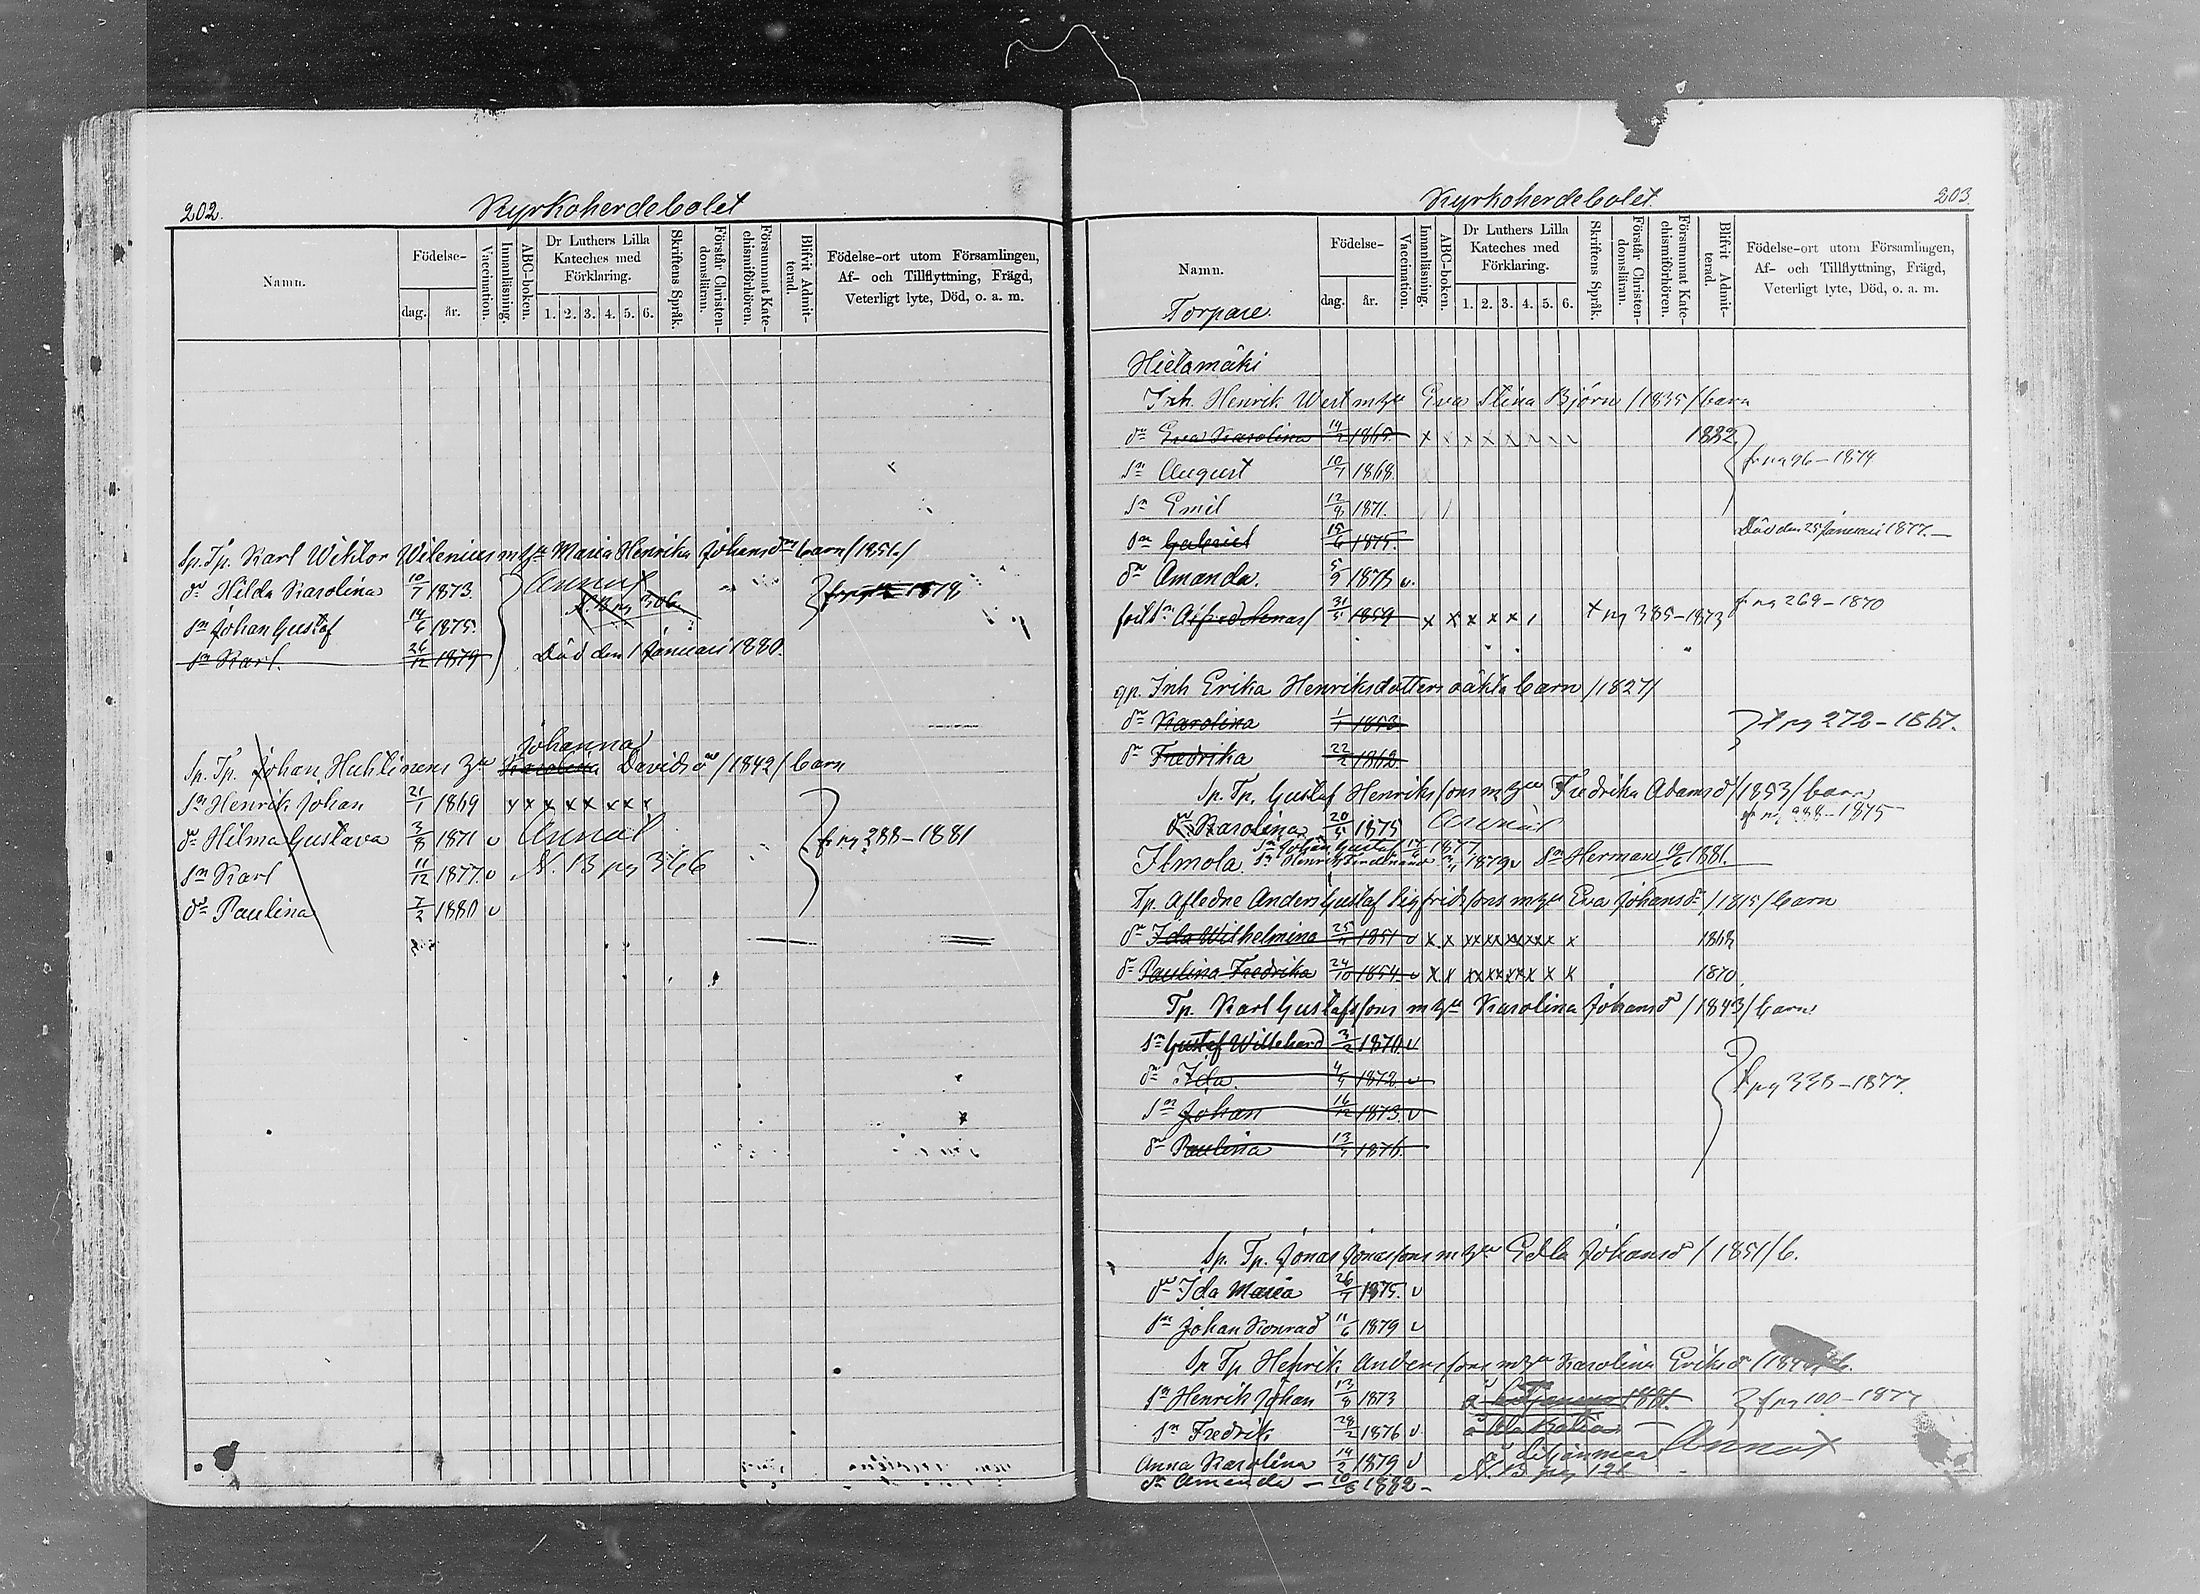 202.
Kyrkoherdebolet
Namn.
Födelse-
dag. år.
Vaccination.
Innanläsning.
ABC-boken.
Dr Luthers Lilla
Kateches med
Förklaring.
1. 2. 3. 4. 5. 6.
Skriftens Språk.
Förstår Christen-
domsläran.
Försummat Kate-
chismiförhören.
Blifvit Admit-
terad.
Födelse-ort utom Församlingen,
Af- och Tillflyttning, Frägd,
Veterligt lyte, Död, o. a. m.
Sp. Tp. Karl Wiktor Wilenius m hu Maria Henrika Johansdrs barn /1851/
dr Hilda Karolina 10/7 1873. Annat
sn Johan Gustaf 14/6 1875. N. B pg 306
sn Karl. 26/12 1879 Död den 1 Januari 1880.
Johanna
Sp. Tp. Johan Huhtinens hu Karolina Davidsd /1842/ barn
sn Henrik Johan 21/1 1869 x x x x x x x x
dr Hilma Gustava 3/8 1871 v Annat fr pg 288-1881
sn Karl 11/12 1877. v N. B pg 366
dr Paulina 7/2 1880 v
Kyrkoherdebolet
203
Namn.
Torpare.
Födelse-
dag. år.
Vaccination.
Innanläsning.
ABC-boken.
Dr Luthers Lilla
Kateches med
Förklaring.
1. 2. 3. 4. 5. 6.
Skriftens Språk.
Förstår Christen-
domsläran.
Försummat Kate-
chismiförhören.
Blifvit Admit-
terad.
Födelse-ort utom Församlingen,
Af- och Tillflyttning, Frägd,
Veterligt lyte, Död, o. a. m.
Hietamäki
Inh. Henrik West m hu Eva Stina Björn /1835/ barn
dr Eva Karolina 14/2 1865 x x x x x 1882
sn August 10/7 1868 fr pg 96-1874
sn Emil 12/8 1871.
sn Gabriel 15/6 1875. Död den 25 Januari 1877.
dr Amanda. 5/9 1878 v.
31/5 1859 x x x x x t pg 385-1873 fr pg 269-1870
gp. Inh Erika Henriksdotters oäkta barn /1827/
dr Karolina 1/1 1853 t pg 272-1867.
dr Fredrika 22/2 1862
Sp. Tp. Gustaf Henrikssons m hu Fredrika Adamsd /1853/ barn
dr Karolina 20/5 1875 Annat
sn Johan Gustaf 1877
Ilmola. sn Henrik Ferdinand 1879 v sn Herman 19/6 1881.
Tp. Afledne Anders Gustaf Sigfridssons m hu Eva Johansdr /1815/ barn
dr Ida Wilhelmina 25/11 1851 v x x x x x x x x x x 1868
dr Paulina Fredrika 24/10 1854 v x x x x x x x x x x 1870.
Tp. Karl Gustafssons m hu Karolina Johansd /1843/ barn
sn Gustaf Willehard 3/2 1870 v
dr Ida. 4/5 1872 v t pg 338-1877.
sn Johan 16/12 1873. v
dr Paulina 13/5 1876.
Sp. Tp. Jonas Jonassons m hu Edla Johansd /1851/ b.
dr Ida Maria 26/7 1875. v
sn Johan Konrad 11/6 1879 v
Sp Tp Henrik Anderssons m hu Karolina Eriksd
sn Henrik Johan 13/8 1873 1881. fr pg 100-1877
sn Fredrik 28/2 1876 v
Anna Karolina 14/2 1879 v Annat
dr Amanda - 10/6 1882 - N. B pg 121